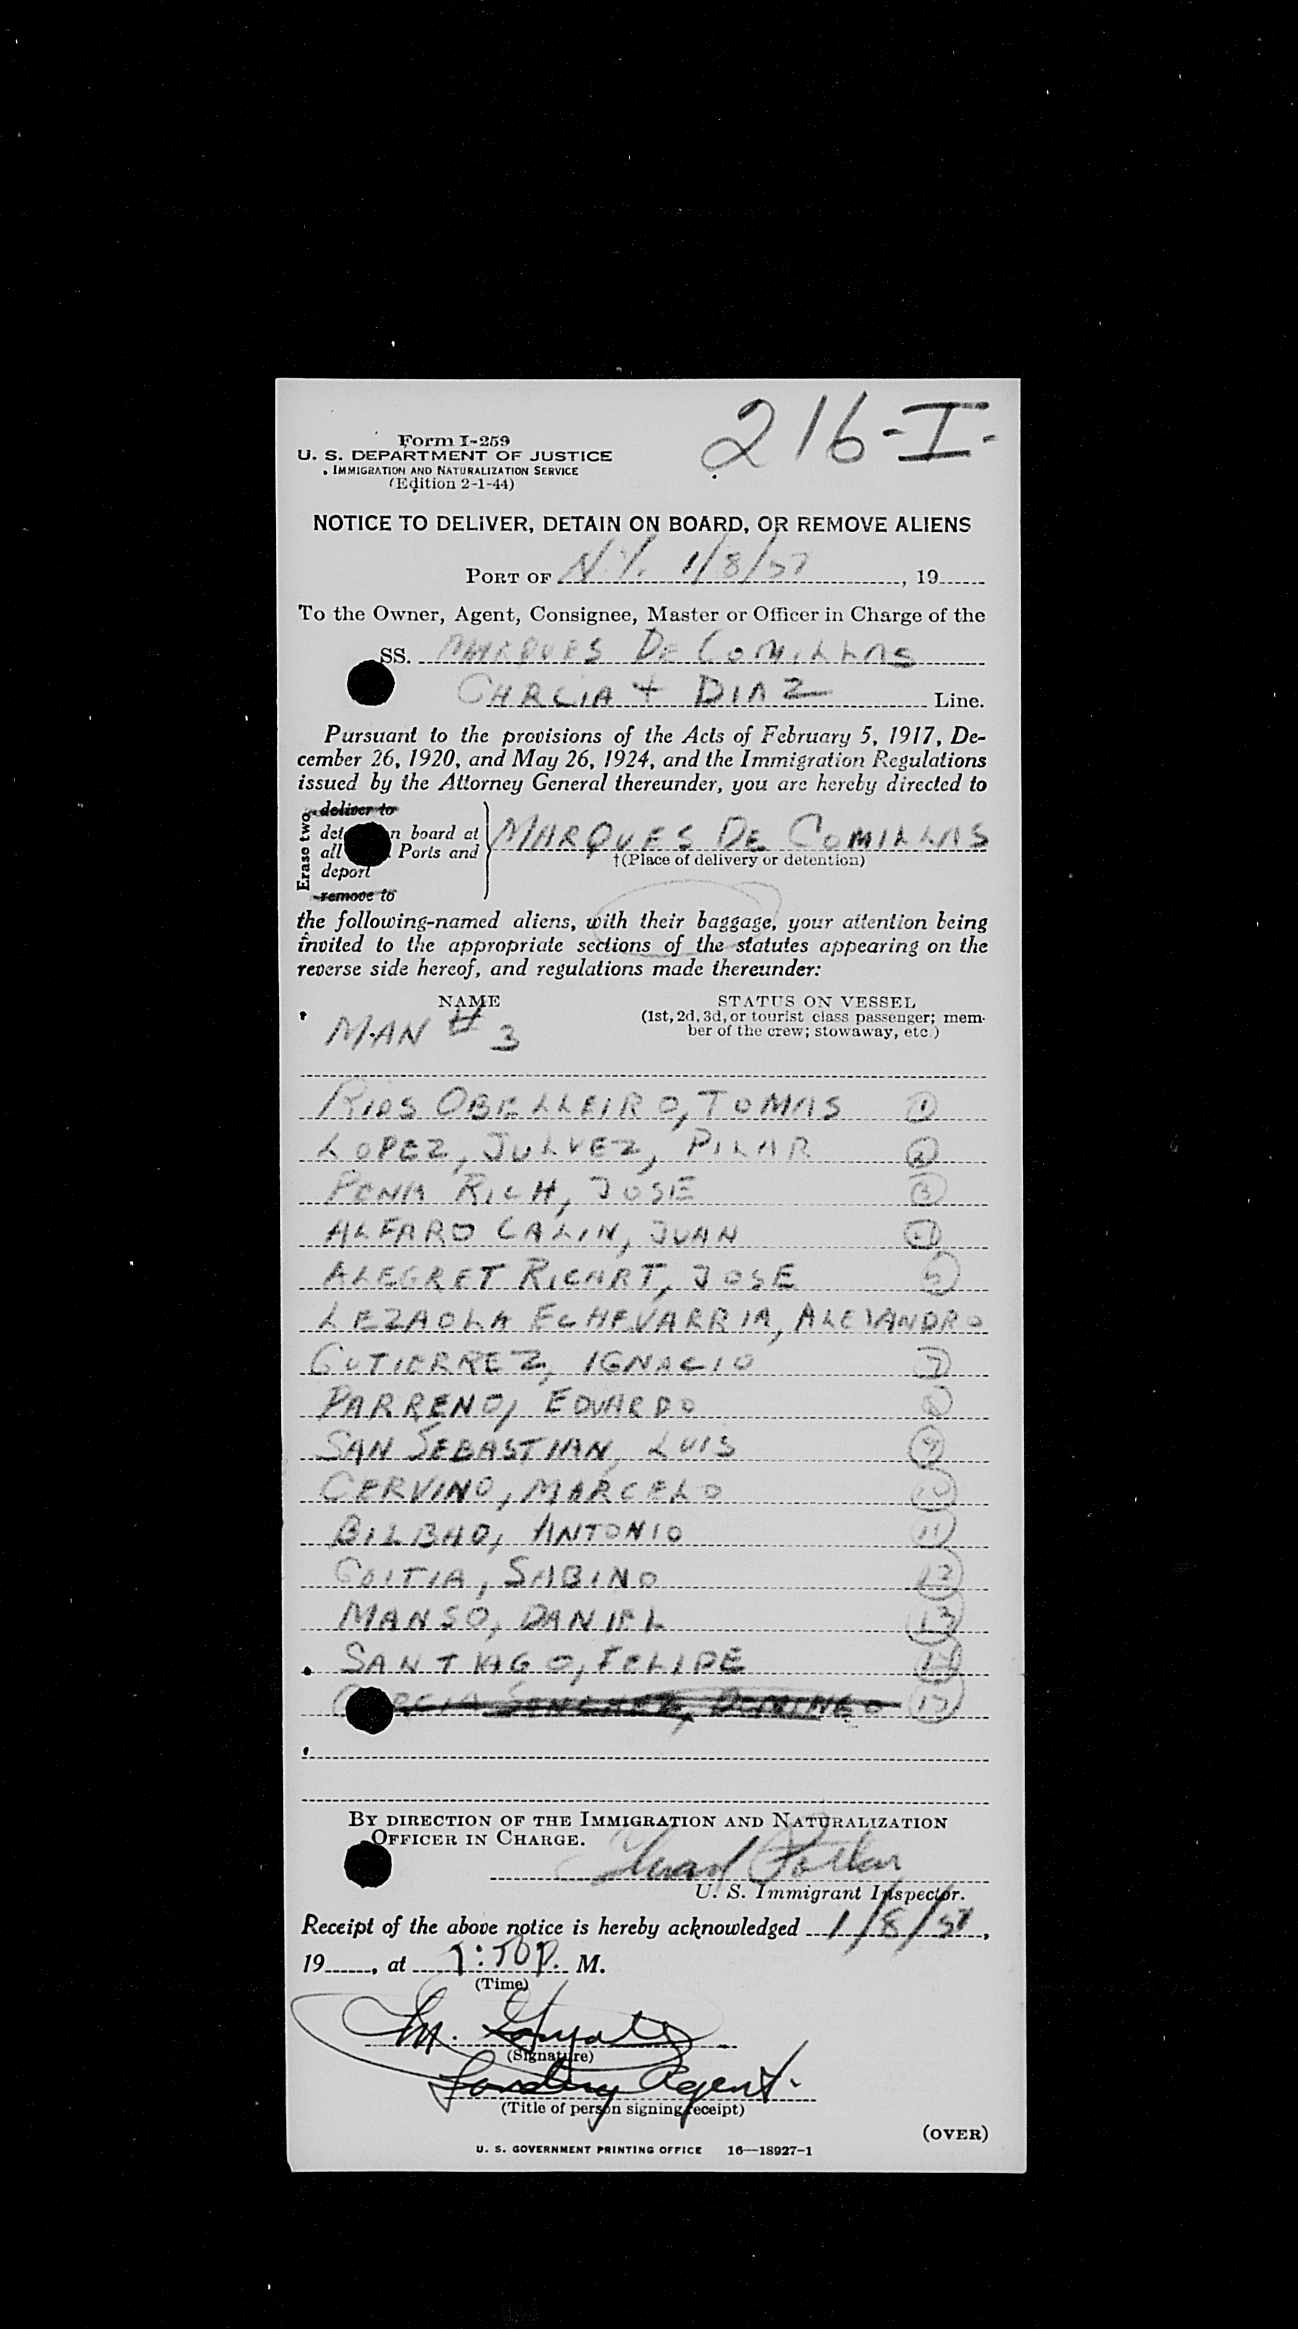 216-I-
Form I-259
U. S. DEPARTMENT OF JUSTICE
IMMIGRATION AND NATURALIZATION SERVICE
(Edition 2-1-44)
NOTICE TO DELIVER, DETAIN ON BOARD, OR REMOVE ALIENS
PORT OF N.Y. 1/8/57, 19
To the Owner, Agent, Consignee, Master or Officer in Charge of the
SS. MARQUES DE COMILLAS
GARCIA + DIAZ Line.
Pursuant to the provisions of the Acts of February 5, 1917, De-
cember 26, 1920, and May 26, 1924, and the Immigration Regulations
issued by the Attorney General thereunder, you are hereby directed to
Erase two
deliver to
board at
all Ports and
deport
remove to
MARQUES DE COMILLAS
†(Place of delivery or detention)
the following-named aliens, with their baggage, your attention being
invited to the appropriate sections of the statutes appearing on the
reverse side hereof, and regulations made thereunder:
NAME STATUS ON VESSEL
(1st, 2d, 3d, or tourist class passenger; mem-
ber of the crew; stowaway, etc.)
MAN # 3
RIOS OBELLEIRO, TOMAS 1
LOPEZ, JULVEZ, PILAR 2
PENA RICH, JOSE 3
ALFARO CALIN, JUAN 4
ALEGRET RICART, JOSE 5
LEZAOLA ECHEVARRIA, ALEJANDRO
GUTIERREZ, IGNACIO 7
PARRENO, EDUARDO 8
SAN SEBASTIAN, LUIS 9
CERVINO, MARCELO 10
BILBAO, ANTONIO 11
GOITIA, SABINO 12
MANSO, DANIEL 13
SANTIAGO, FELIPE 14
DOMINGO 15
BY DIRECTION OF THE IMMIGRATION AND NATURALIZATION
OFFICER IN CHARGE.
U. S. Immigrant Inspector.
Receipt of the above notice is hereby acknowledged 1/8/57,
19, at P. M.
(Time)
M.
(Signature)
Agent.
(Title of person signing receipt)
(OVER)
U. S. GOVERNMENT PRINTING OFFICE 16—18927-1